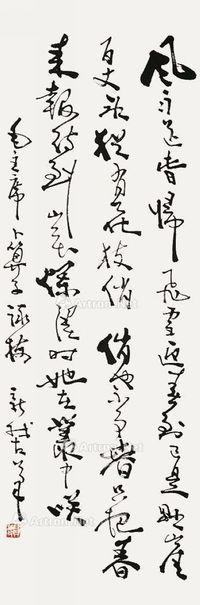 风雨送春归 飞雪迎春到 已是悬崖
百丈冰 犹有花枝俏 俏也不争春 只把春
来报 待到山花烂漫时 她在丛中咲
毛主席卜算子咏梅